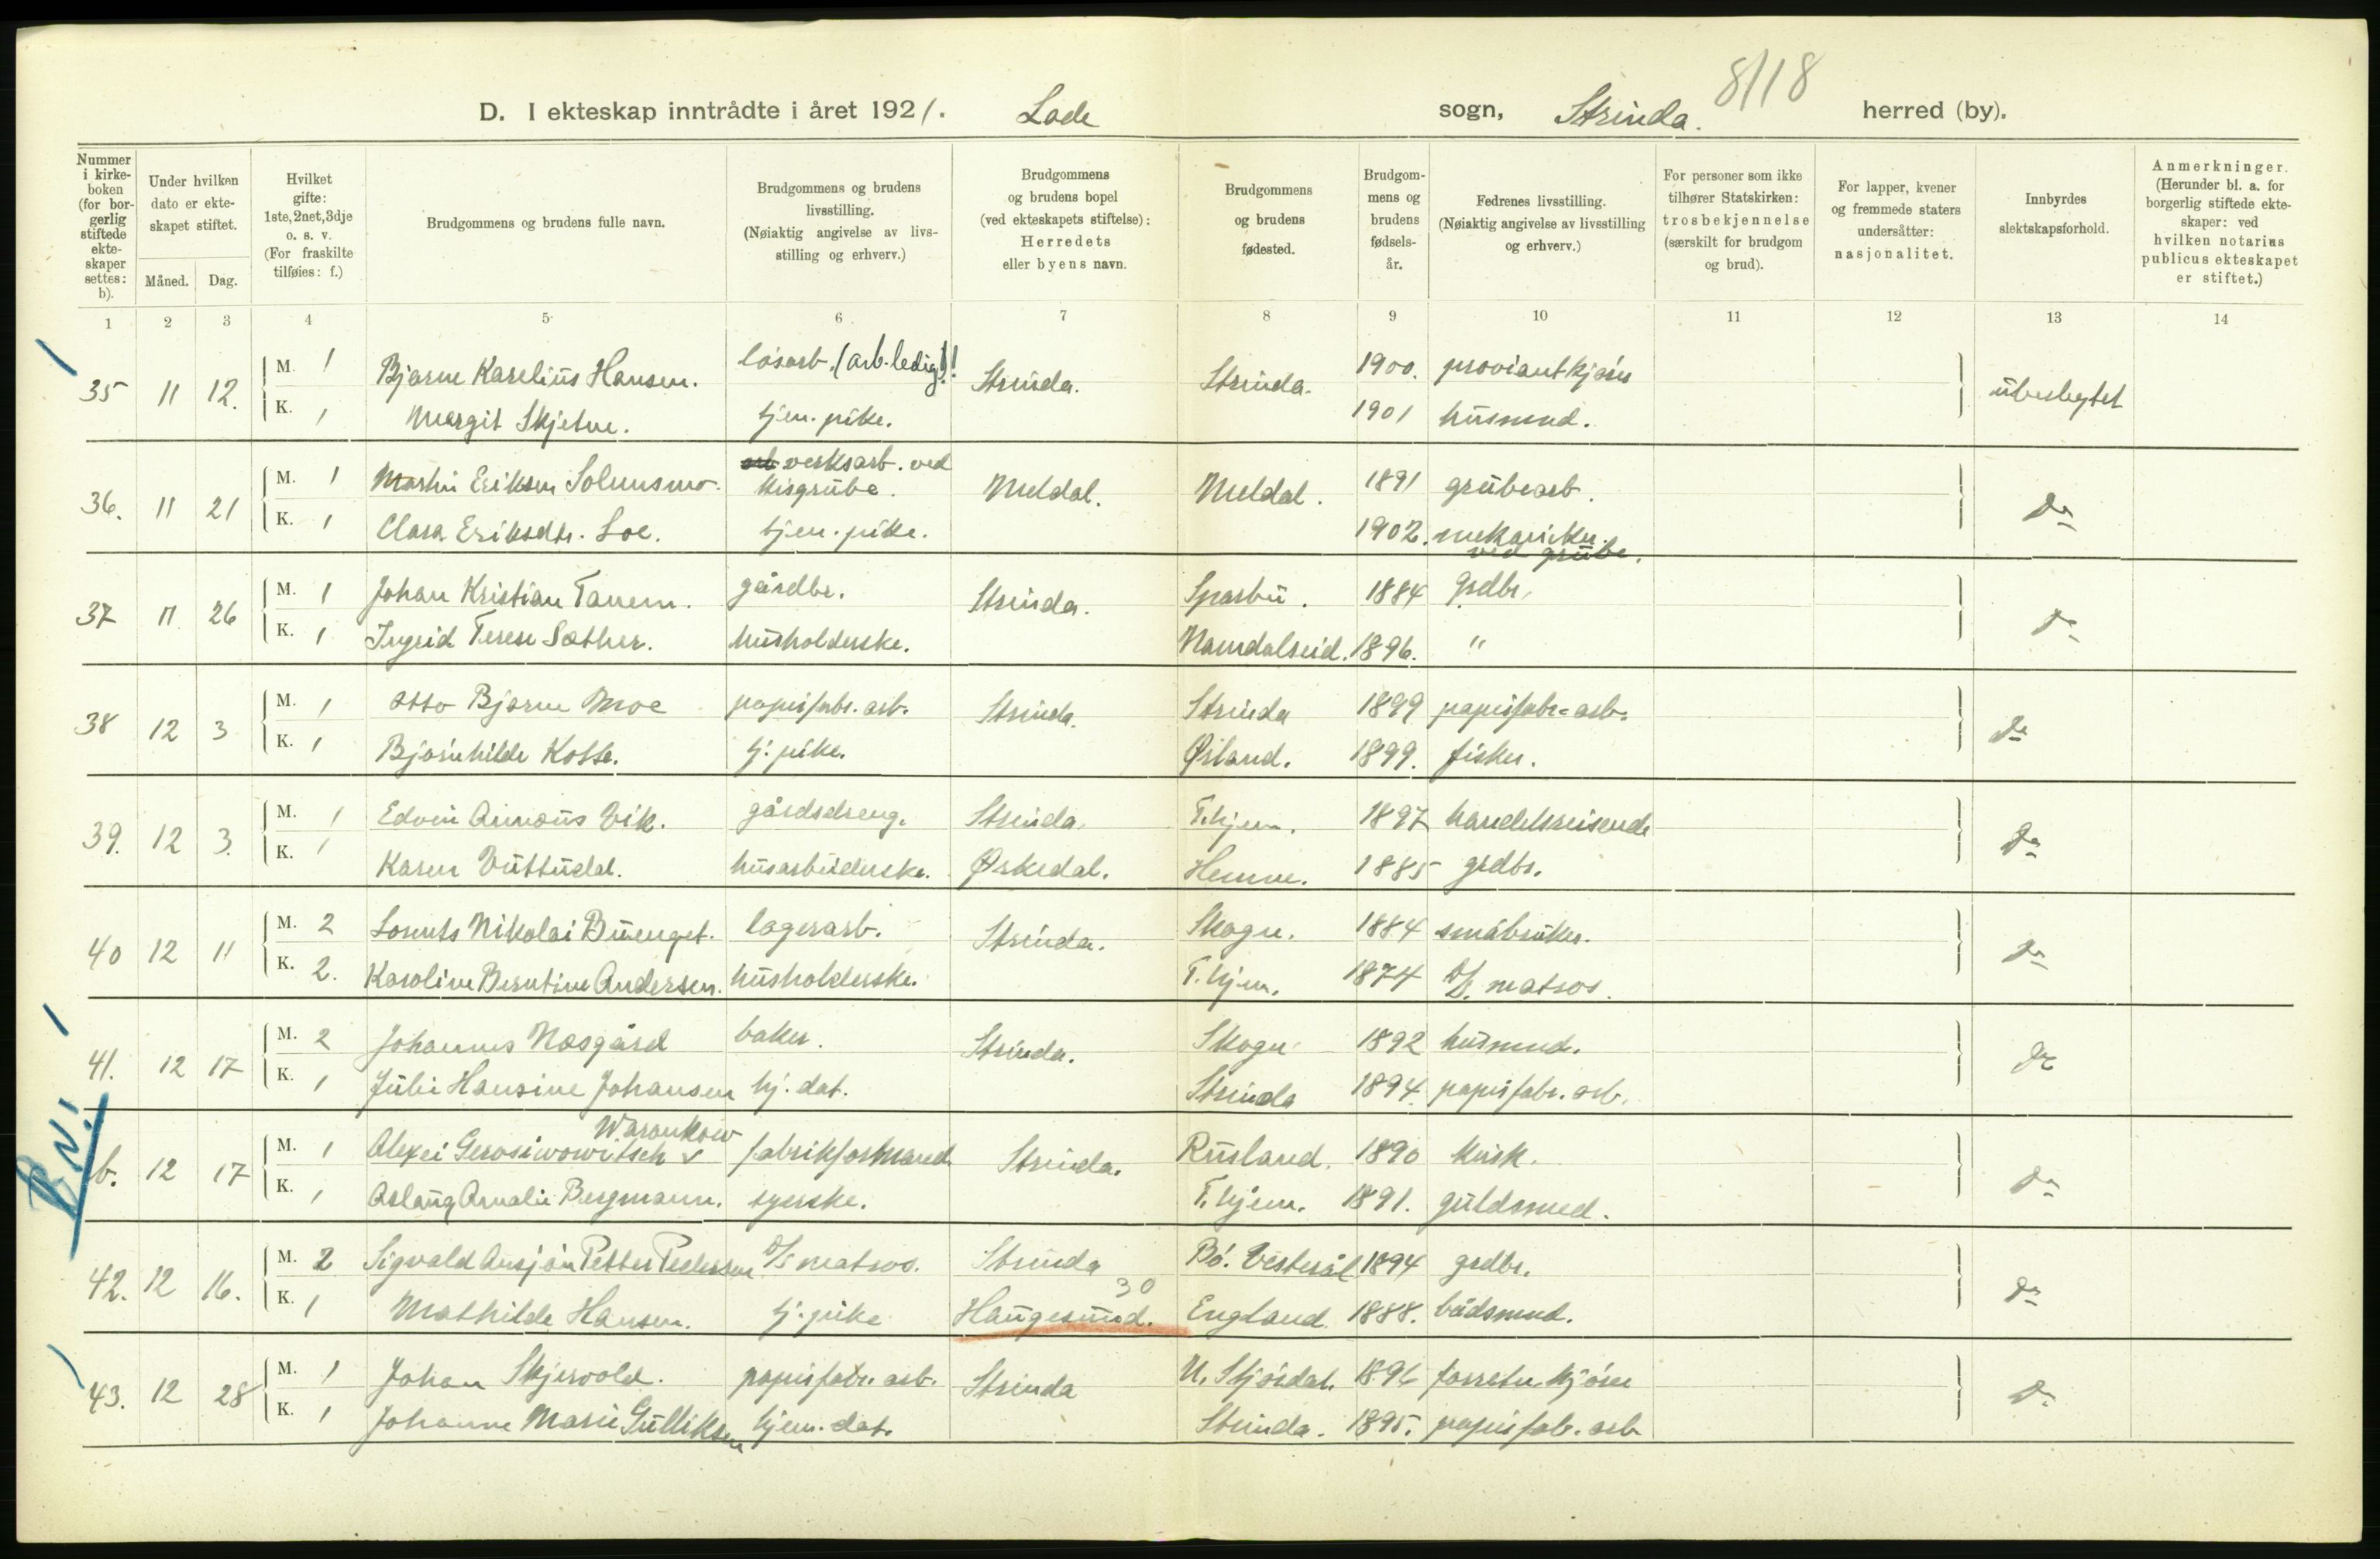 8/18
D. I ekteskap inntrådte i året 1921. Lade sogn, Strinda. herred (by).
Nummer i kirkeboken (for borgerlig stiftede ekteskaper settes: b).
Under hvilken dato er ekteskapet stiftet.
Måned. Dag.
Hvilket gifte: 1ste, 2net, 3dje o. s. v. (For fraskilte tilføies: f.)
Brudgommens og brudens fulle navn.
Brudgommens og brudens livsstilling. (Nøiaktig angivelse av livsstilling og erhverv.)
Brudgommens og brudens bopel (ved ekteskapets stiftelse): Herredets eller byens navn.
Brudgommens og brudens fødested.
Brudgommens og brudens fødselsår.
Fedrenes livsstilling. (Nøiaktig angivelse av livsstilling og erhverv.)
For personer som ikke tilhører Statskirken: trosbekjennelse (særskilt for brudgom og brud).
For lapper, kvener og fremmede staters undersåtter: nasjonalitet.
Innbyrdes slektskapsforhold.
Anmerkninger. (Herunder bl. a. for borgerlig stiftede ekteskaper: ved hvilken notarius publicus ekteskapet er stiftet.)
1 2 3 4 5 6 7 8 9 10 11 12 13 14
35 11 12. M. 1 Bjarne Karelius Hansen. løsarb. (arb.ledig)! Strinda. Strinda. 1900. proviantkjører ubeslegtet
K. 1 Margit Skjetne. tjen. pike. 1901 husmnd.
36. 11 21 M. 1 Martin Eriksen Solemsmo. arb verksarb. ved kisgrube. Meldal. Meldal. 1891 grubearb. Do
K. 1 Clara Eriksdtr. Loe. tjen. pike. 1902. mekaniker. ved grube.
37 11 26 M. 1 Johan Kristian Tanem. gårdbr. Strinda. Sparbu. 1884 grdbr. Do
K. 1 Ingrid Terese Sæther. husholderske. Namdalseid. 1896. "
38 12 3 M. 1 Otto Bjarne Moe papirfabr. arb. Strinda. Strinda 1899 papirfabr.-arb. Do
K. 1 Bjørnhilde Kotte. tj. pike. Ørland. 1899. fisker.
39. 12 3. M. 1 Edvin Arnøus Vik. gårdsdreng. Strinda. T.hjem. 1897 handelsreisende Do
K. 1 Karen Vuttudal. husarbeiderske. Ørkedal. Hemne. 1885 grdbr.
40 12 11 M. 2 Lorents Nikolai Buenget. lagerarb. Strinda. Skogn. 1884 småbruker. Do
K. 2. Karoline Berntine Andersen. husholderske. T.hjem. 1874 D/S. matros.
41. 12 17 M. 2 Johannes Næsgård baker. Strinda. Skogn 1892 husmnd. Do
K. 1 Julie Hansine Johansen hj. dat. Strinda 1894. papirfabr. arb.
B.N.!
b. 12 17 M. 1 Alexei Gerosiwowitsch Waronkow fabrikformand Strinda. Rusland. 1890 kusk. Do
K. 1 Aslaug Amalie Bergmann. syerske. T.hjem. 1891. guldsmed.
42. 12 16. M. 2 Sigvald Ansjøn Petter Pedersen D/S matros. Strinda Bø. Vesterål 1894 grdbr. Do
K. 1 Mathilde Hansen. tj. pike Haugesund. 30 England. 1888. bådsmnd.
43. 12 28 M. 1 Johan Skjervold. papirfabr. arb. Strinda N. Stjørdal. 1896 forretn. kjører Do
K. 1 Johanne Marie Gulliksen hjem. dat. Strinda. 1895. papirfabr. arb